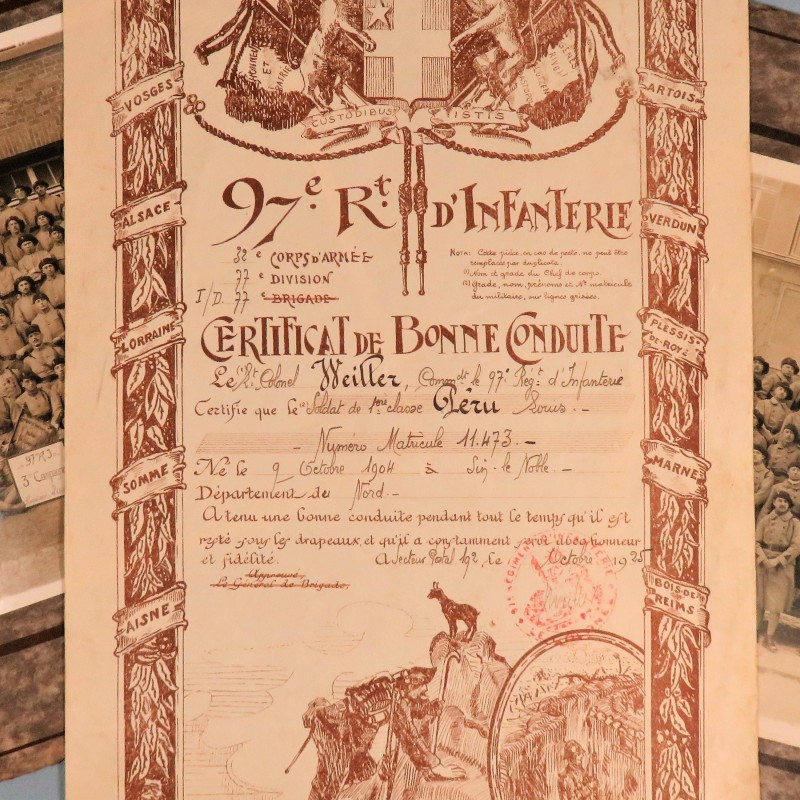 HONNEUR ET PATRIE
CUSTODIBUS ISTIS
VOSGES
ARTOIS
97e Rt. D'INFANTERIE
ALSACE
VERDUN
32e CORPS D'ARMÉE
77e DIVISION
I/D. 77e BRIGADE
Nota: Cette pièce, en cas de perte, ne peut être
remplacée par duplicata.
Nom et grade du Chef de corps.
Grade, nom, prénoms et No matricule
du militaire, sur lignes grisées.
LORRAINE
PLESSIS-
DE-ROYE
CERTIFICAT DE BONNE CONDUITE
Le Lt. Colonel Weiller, Commdt le 97e Régt. d'Infanterie
Certifie que le Soldat de 1ère classe Péru Louis.-
- Numéro Matricule 11.473.-
Né le 9 Octobre 1904 à Sin-le Noble.-
Département du Nord.-
SOMME
MARNE
A tenu une bonne conduite pendant tout le temps qu'il est
resté sous les drapeaux, et qu'il a constamment servi avec honneur
et fidélité.
A Secteur Postal 192, le Octobre 1925
Approuvé
Le Général de Brigade,
AISNE
BOIS-DE-
REIMS
97-1-3
3e Compagnie